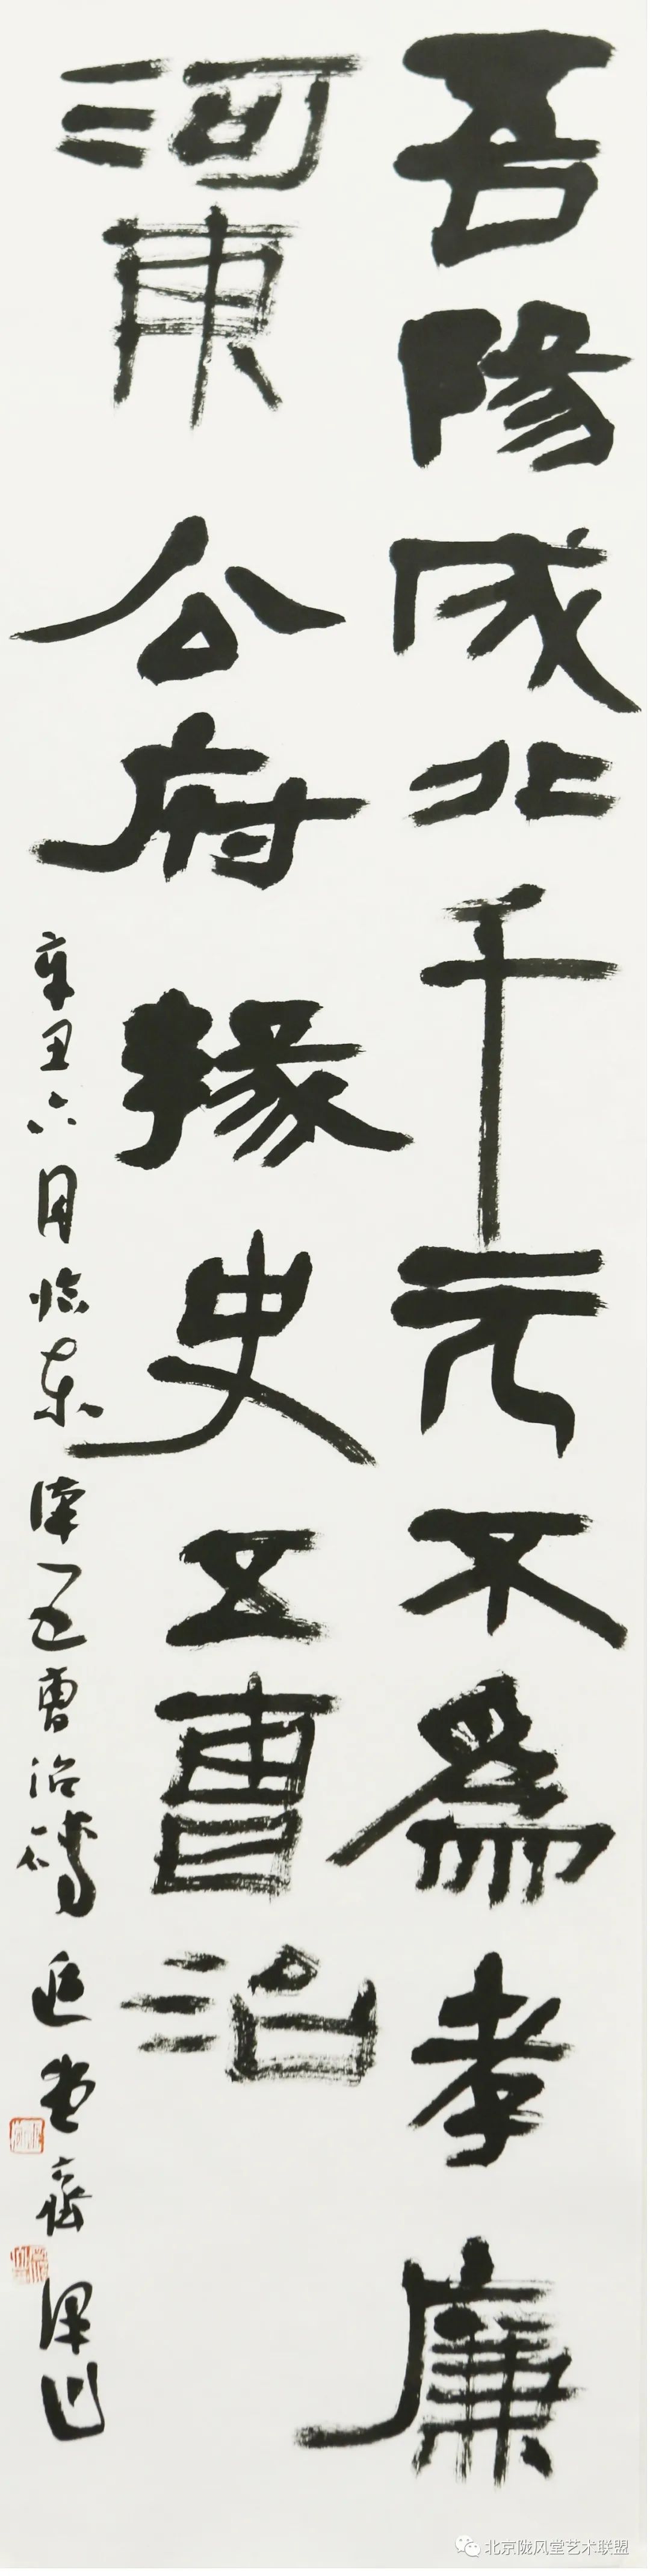 吾陽成北千元不為孝廉
河東公府掾史五曹治
辛丑六月临东漢五曹治磚
北京陇风堂艺术联盟